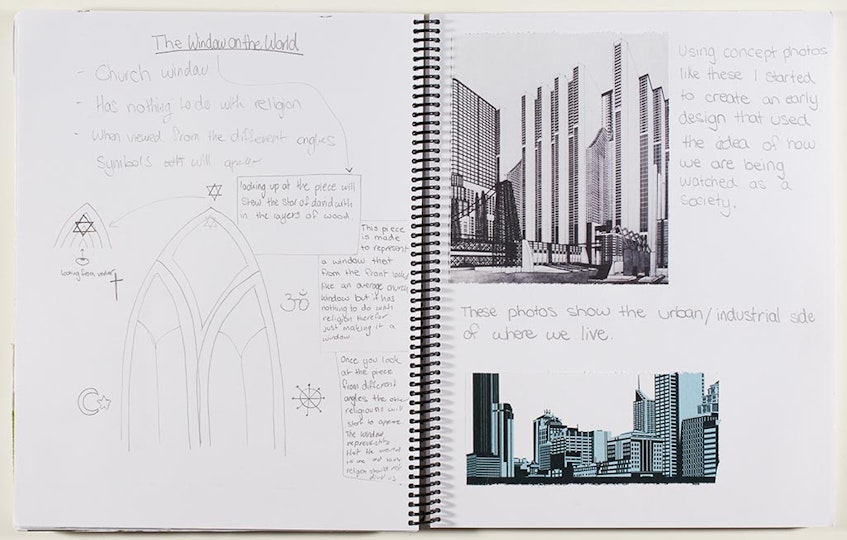 The Window on the World
- Church window
- Has nothing to do with religion
- When viewed from the different angles
Symbols will appear
looking up at the piece will
show the star of david with
in the layers of wood.
looking from under
This piece
is made
to represent
a window that
from the front looks
like an average church
window but it has
nothing to do with
religion therefor
just making it a
window.
ॐ
Once you look
at the piece
from different
angles the other
religiouns will
start to appear.
The window
represents
that the world
is one and
religion should not
divide us.
Using concept photos
like these I started
to create an early
design that used
the idea of how
we are being
watched as a
society.
These photos show the urban/industrial side
of where we live.